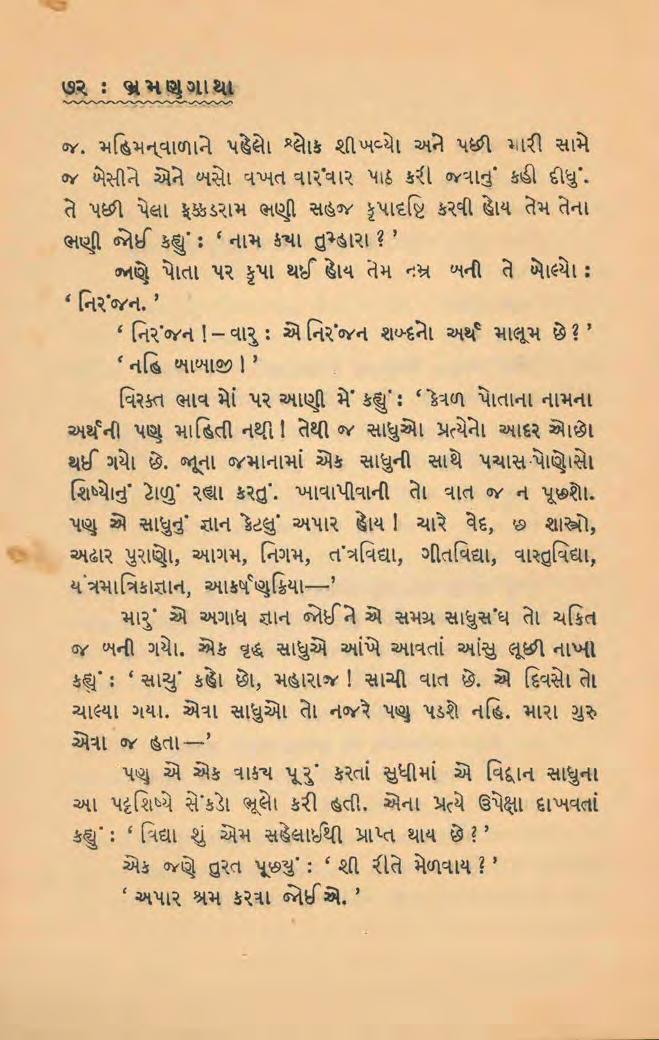 ૭૨ : ભ્રમણગાથા
જ. મહિમનવાળાને પહેલો શ્લોક શીખવ્યો અને પછી મારી સામે
જ બેસીને એને બસો વખત વારંવાર પાઠ કરી જવાનું કહી દીધું.
તે પછી પેલા ફક્કડરામ ભણી સહજ કૃપાદૃષ્ટિ કરવી હોય તેમ તેના
ભણી જોઈ કહ્યું : ‘ નામ ક્યા તુમ્હારા ? ’
જાણે પોતા પર કૃપા થઈ હોય તેમ નમ્ર બની તે બોલ્યો :
‘ નિરંજન. ’
‘ નિરંજન ! – વારુ : એ નિરંજન શબ્દનો અર્થ માલૂમ છે ? ’
‘ નહિ બાબાજી ! ’
વિરક્ત ભાવ મોં પર આણી મેં કહ્યું : ‘ કેવળ પોતાના નામના
અર્થની પણ માહિતી નથી ! તેથી જ સાધુઓ પ્રત્યેનો આદર ઓછો
થઈ ગયો છે. જૂના જમાનામાં એક સાધુની સાથે પચાસ-પોણોસો
શિષ્યોનું ટોળું રહ્યા કરતું. ખાવાપીવાની તો વાત જ ન પૂછશો.
પણ એ સાધુનું જ્ઞાન કેટલું અપાર હોય ! ચારે વેદ, છ શાસ્ત્રો,
અઢાર પુરાણો, આગમ, નિગમ, તંત્રવિદ્યા, ગીતવિદ્યા, વાસ્તુવિદ્યા,
યંત્રમાત્રિકાજ્ઞાન, આકર્ષણક્રિયા—’
મારું એ અગાધ જ્ઞાન જોઈને એ સમગ્ર સાધુસંઘ તો ચકિત
જ બની ગયો. એક વૃદ્ધ સાધુએ આંખે આવતાં આંસુ લૂછી નાખી
કહ્યું : ‘ સાચું કહો છો, મહારાજ ! સાચી વાત છે. એ દિવસો તો
ચાલ્યા ગયા. એવા સાધુઓ તો નજરે પણ પડશે નહિ. મારા ગુરુ
એવા જ હતા —’
પણ એ એક વાક્ય પૂરું કરતાં સુધીમાં એ વિદ્વાન સાધુના
આ પટ્ટશિષ્યે સેંકડો ભૂલો કરી હતી. એના પ્રત્યે ઉપેક્ષા દાખવતાં
કહ્યું : ‘ વિદ્યા શું એમ સહેલાઈથી પ્રાપ્ત થાય છે ? ’
એક જણે તુરત પૂછ્યું : ‘ શી રીતે મેળવાય ? ’
‘ અપાર શ્રમ કરવા જોઈએ. ’